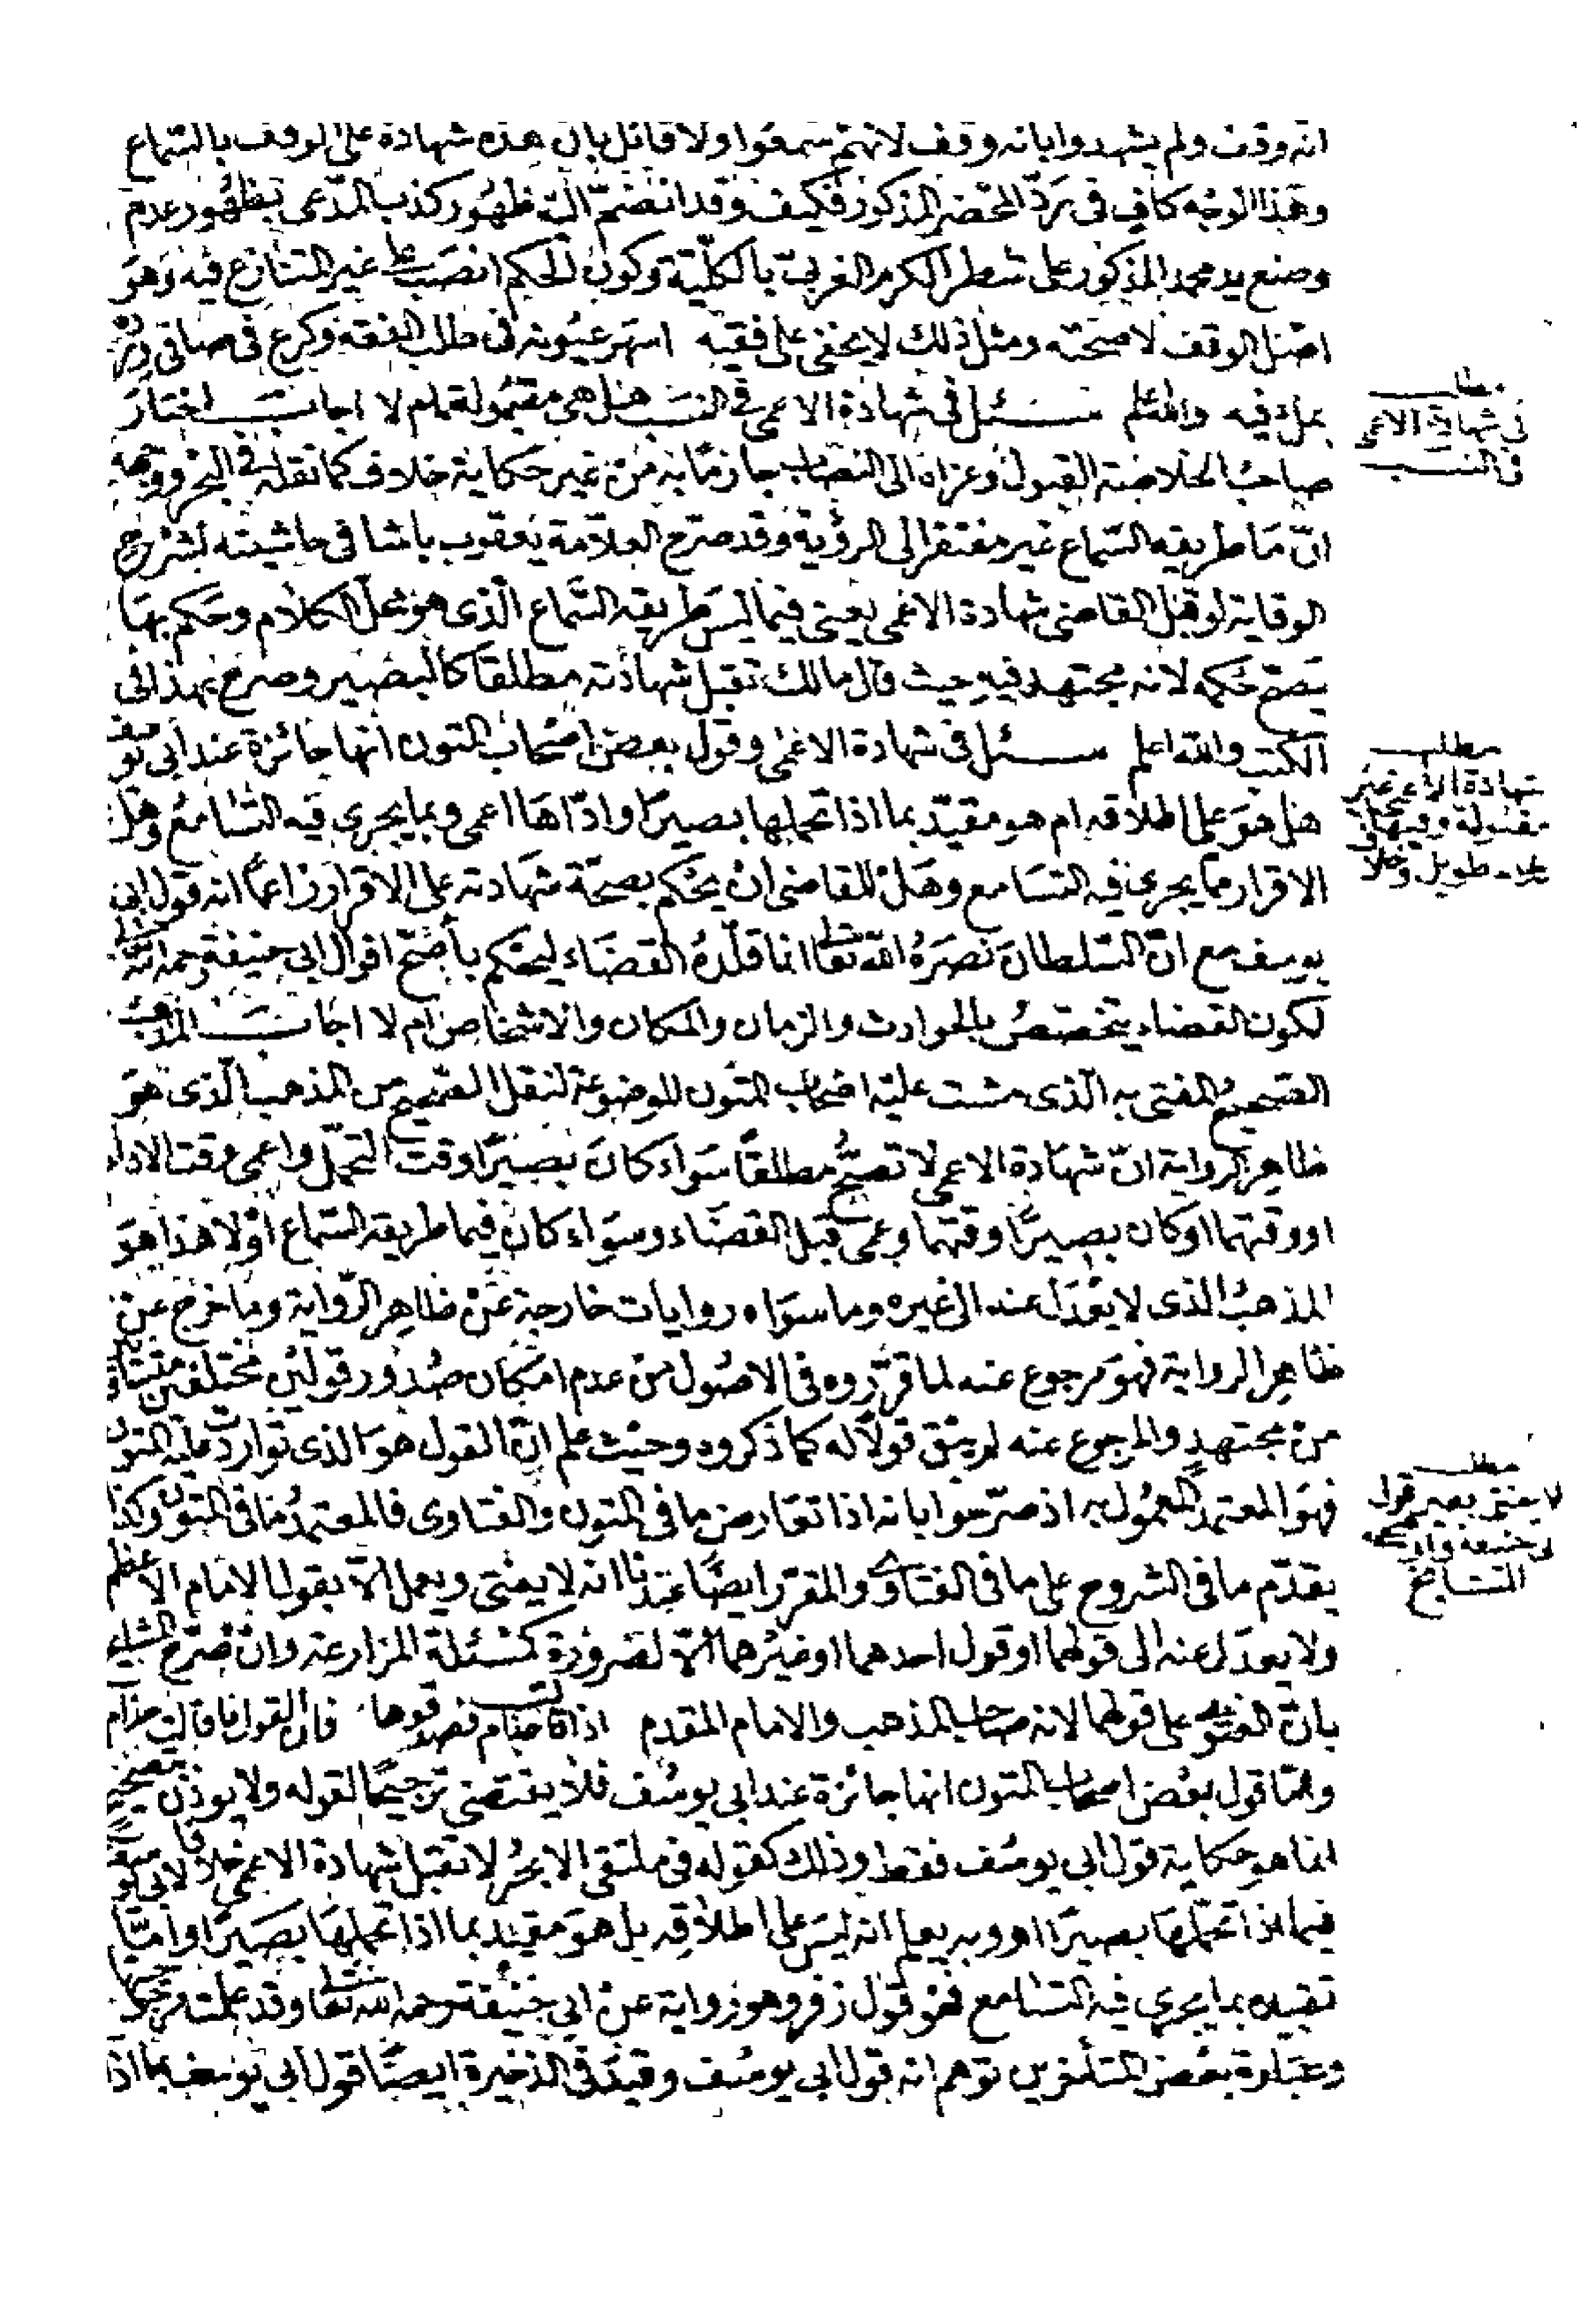 انه وقف ولم يشهدوا بانه وقف لانهم سمعوا ولا قائل بان هذه شهادة على الوقف بالسماع
وهذا الوجه كاف في رد المحضر المذكور فكيف وقد انضم اليه ظهور كذب المدعى بظهور عدم
وضع يد محمد المذكور على شطر الكرم الغربى بالكلية وكون الحكم انصب على غير المتنازع فيه وهو
اصل الوقف لا صحته ومثل ذلك لا يخفى على فقيه اسهر عيونه في طلب الفقه وكرع في صافى
بمل فيه والله اعلم سئل في شهادة الاعمى في النسب هل هى مقبولة ام لا اجاب اختار
مطلب
في شهادة الاعمى
في النسب
صاحب الخلاصة القبول وعزاه الى النصاب جازما به من غير حكاية خلاف كما نقله في البحر ووجهه
ان ما طريقه السماع غير مفتقر الى الرؤية وقد صرح العلامة يعقوب باشا في حاشيته لشرح
الوقاية لو قبل القاضى شهادة الاعمى يعنى فيما ليس طريقه السماع الذى هو محل الكلام وحكم بها
يصح حكمه لانه مجتهد فيه حيث قال مالك تقبل شهادته مطلقا كالبصير وصرح بهذا في
الكتب والله اعلم سئل في شهادة الاعمى وقول بعض اصحاب المتون انها جائزة عند ابى يوسف
مطلب
شهادة الاعمى غير
مقبولة وفيها
كلام طويل
هل هو على اطلاقه ام هو مقيد بما اذا تحملها بصيرا واداها اعمى وبما يجرى فيه التسامع وهل
الاقرار مما يجرى فيه التسامع وهل للقاضى ان يحكم بصحة شهادته على الاقرار زاعما انه قول ابى
يوسف مع ان السلطان نصره الله تعالى انما قلده القضاء ليحكم بأصح اقوال ابى حنيفة رحمه الله تعالى
لكون القضاء يتخصص بالحوادث والزمان والمكان والاشخاص ام لا اجاب المذهب
الصحيح المفتى به الذى مشت عليه اصحاب المتون الموضوعة لنقل الصحيح من المذهب الذى هو
ظاهر الرواية ان شهادة الاعمى لا تصح مطلقا سواء كان بصيرا وقت التحمل واعمى وقت الاداء
او وقتهما او كان بصيرا وقتهما وعمى قبل القضاء وسواء كان فيما طريقه السماع او لا هذا هو
المذهب الذى لا يعدل عنه الى غيره وما سواه روايات خارجة عن ظاهر الرواية وما خرج عن
ظاهر الرواية فهو مرجوع عنه لما قرروه في الاصول من عدم امكان صدور قولين مختلفين متساويين
من مجتهد والمرجوع عنه لم يبق قولا له كما ذكروه وحيث علم ان القول هو الذى تواردت عليه المتون
فهو المعتمد المعمول به اذ صرحوا بانه اذا تعارض ما في المتون والفتاوى فالمعتمد ما في المتون وكذا
مطلب
لا يفتى بغير قول
ابى حنيفة وان صححه
المشايخ
يقدم ما في الشروح على ما في الفتاوى والمقرر ايضا عندنا انه لا يفتى ويعمل الا بقول الامام الاعظم
ولا يعدل عنه الى قولهما او قول احدهما او غيرهما الا لضرورة كمسئلة المزارعة وان صرح المشايخ
بان الفتوى على قولهما لانه صاحب المذهب والامام المقدم اذا قالت حذام فصدقوها فان القول ما قالت حذام
واما قول بعض اصحاب المتون انها جائزة عند ابى يوسف فلا يقتضى ترجيحا لقوله ولا يوذن بتصحيحه
انما هو حكاية قول ابى يوسف فقط وذلك كقوله في ملتقى الابحر لا تقبل شهادة الاعمى خلافا لابى يوسف
فيما اذا تحملها بصيرا اه وبه يعلم انه ليس على اطلاقه بل هو مقيد بما اذا تحملها بصيرا واما
تقييده بما يجرى فيه التسامع فهو قول زفر وهو رواية عن ابى حنيفة رحمه الله تعالى وقد علمت
وعبارة بعض المتأخرين توهم انه قول ابى يوسف وقيد في الذخيرة ايضا قول ابى يوسف بما اذا